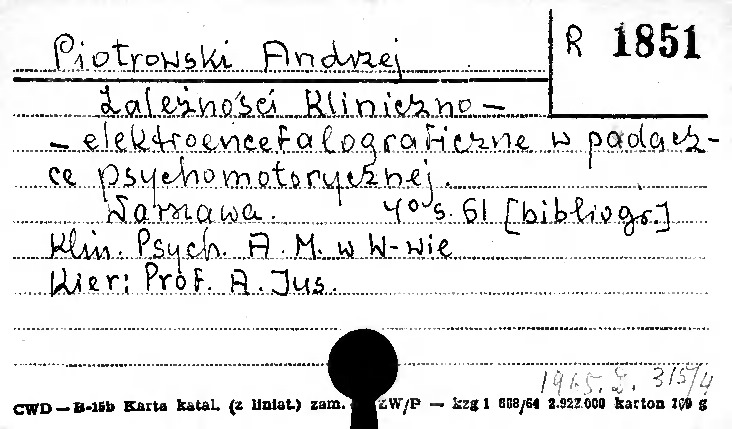 Piotrowski Andrzej
R 1851
Zależności kliniczno –
– elektroencefalograficzne w padacz-
ce psychomotorycznej.
Warszawa. 4° s. 61 [bibliogr.]
Klin. Psych. A. M. w W-wie
Kier: Prof. A. Jus.
1965. I. 315/4
CWD — B-15b Karta katal. (z liniat.) zam. ZW/P — kzg 1 668/64 2.922.000 karton 169 g